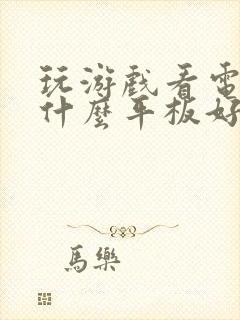 玩游戲看電
什麼平板好
馬樂